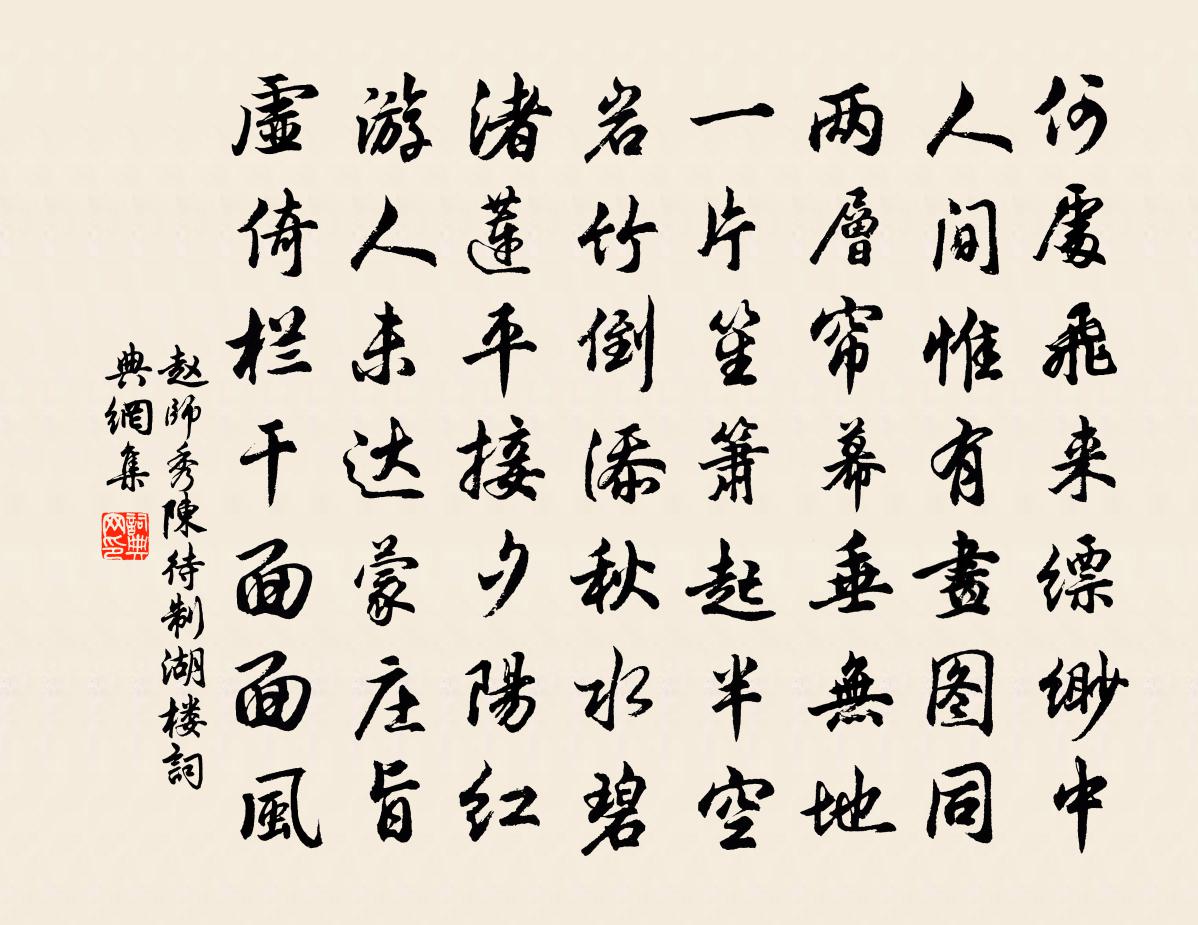 何處飛来缥缈中
人间惟有畫图同
两層帘幕垂無地
一片笙簫起半空
岩竹倒添秋水碧
渚蓮平接夕陽红
游人未达蒙庄旨
虚倚栏干面面風
赵師秀陳待制湖楼詞
典網集
詞典
网印